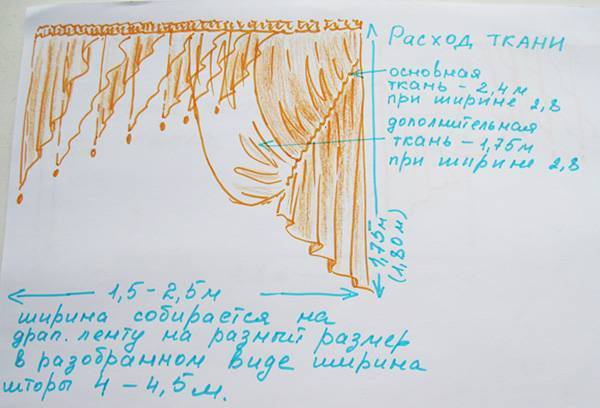 Расход ткани
основная
ткань - 2,4 м
при ширине 2,8
дополнительная
ткань - 1,75 м
при ширине 2,8
1,75м
(1,80м)
1,5 - 2,5 м
ширина собирается на
драп. ленту на разный размер
в разобранном виде ширина
шторы 4 - 4,5 м.